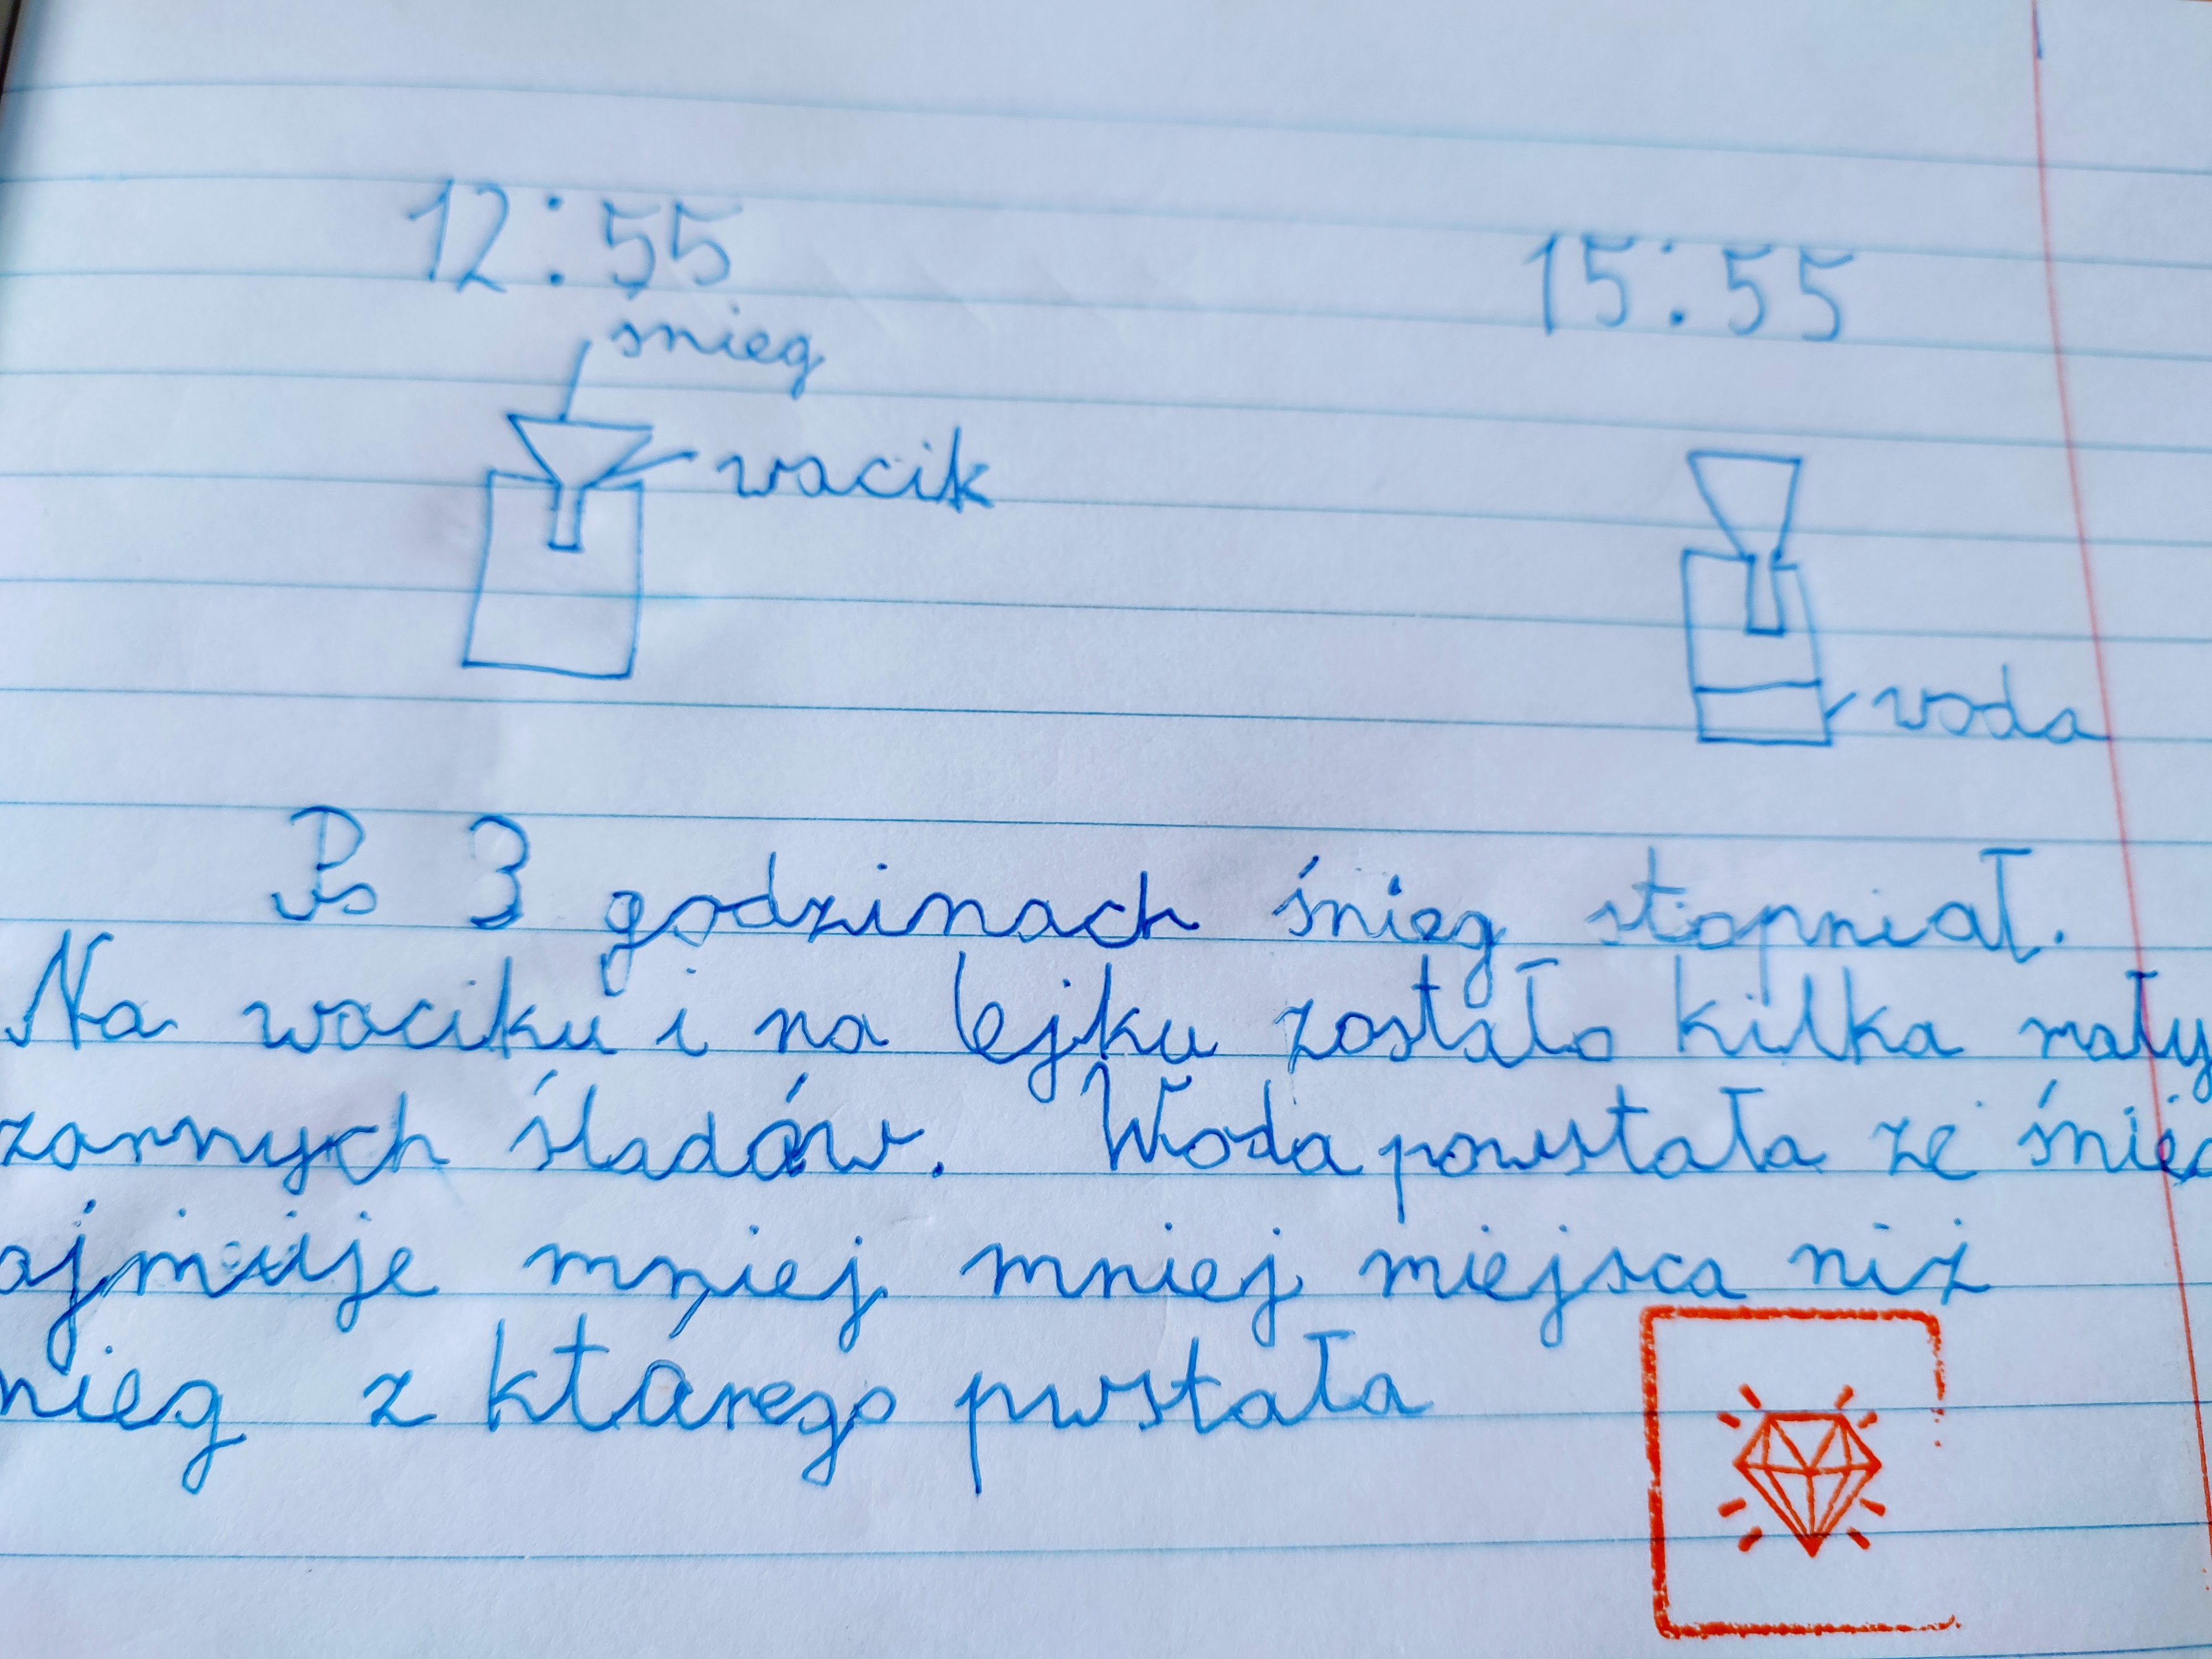 12:55
15:55
śnieg
wacik
woda
Po 3 godzinach śnieg stopniał.
Na waciku i na lejku zostało kilka mały
zarnych śladów. Woda powstała ze śnieg
ajmuje mniej mniej miejsca niż
nieg z którego pwstała